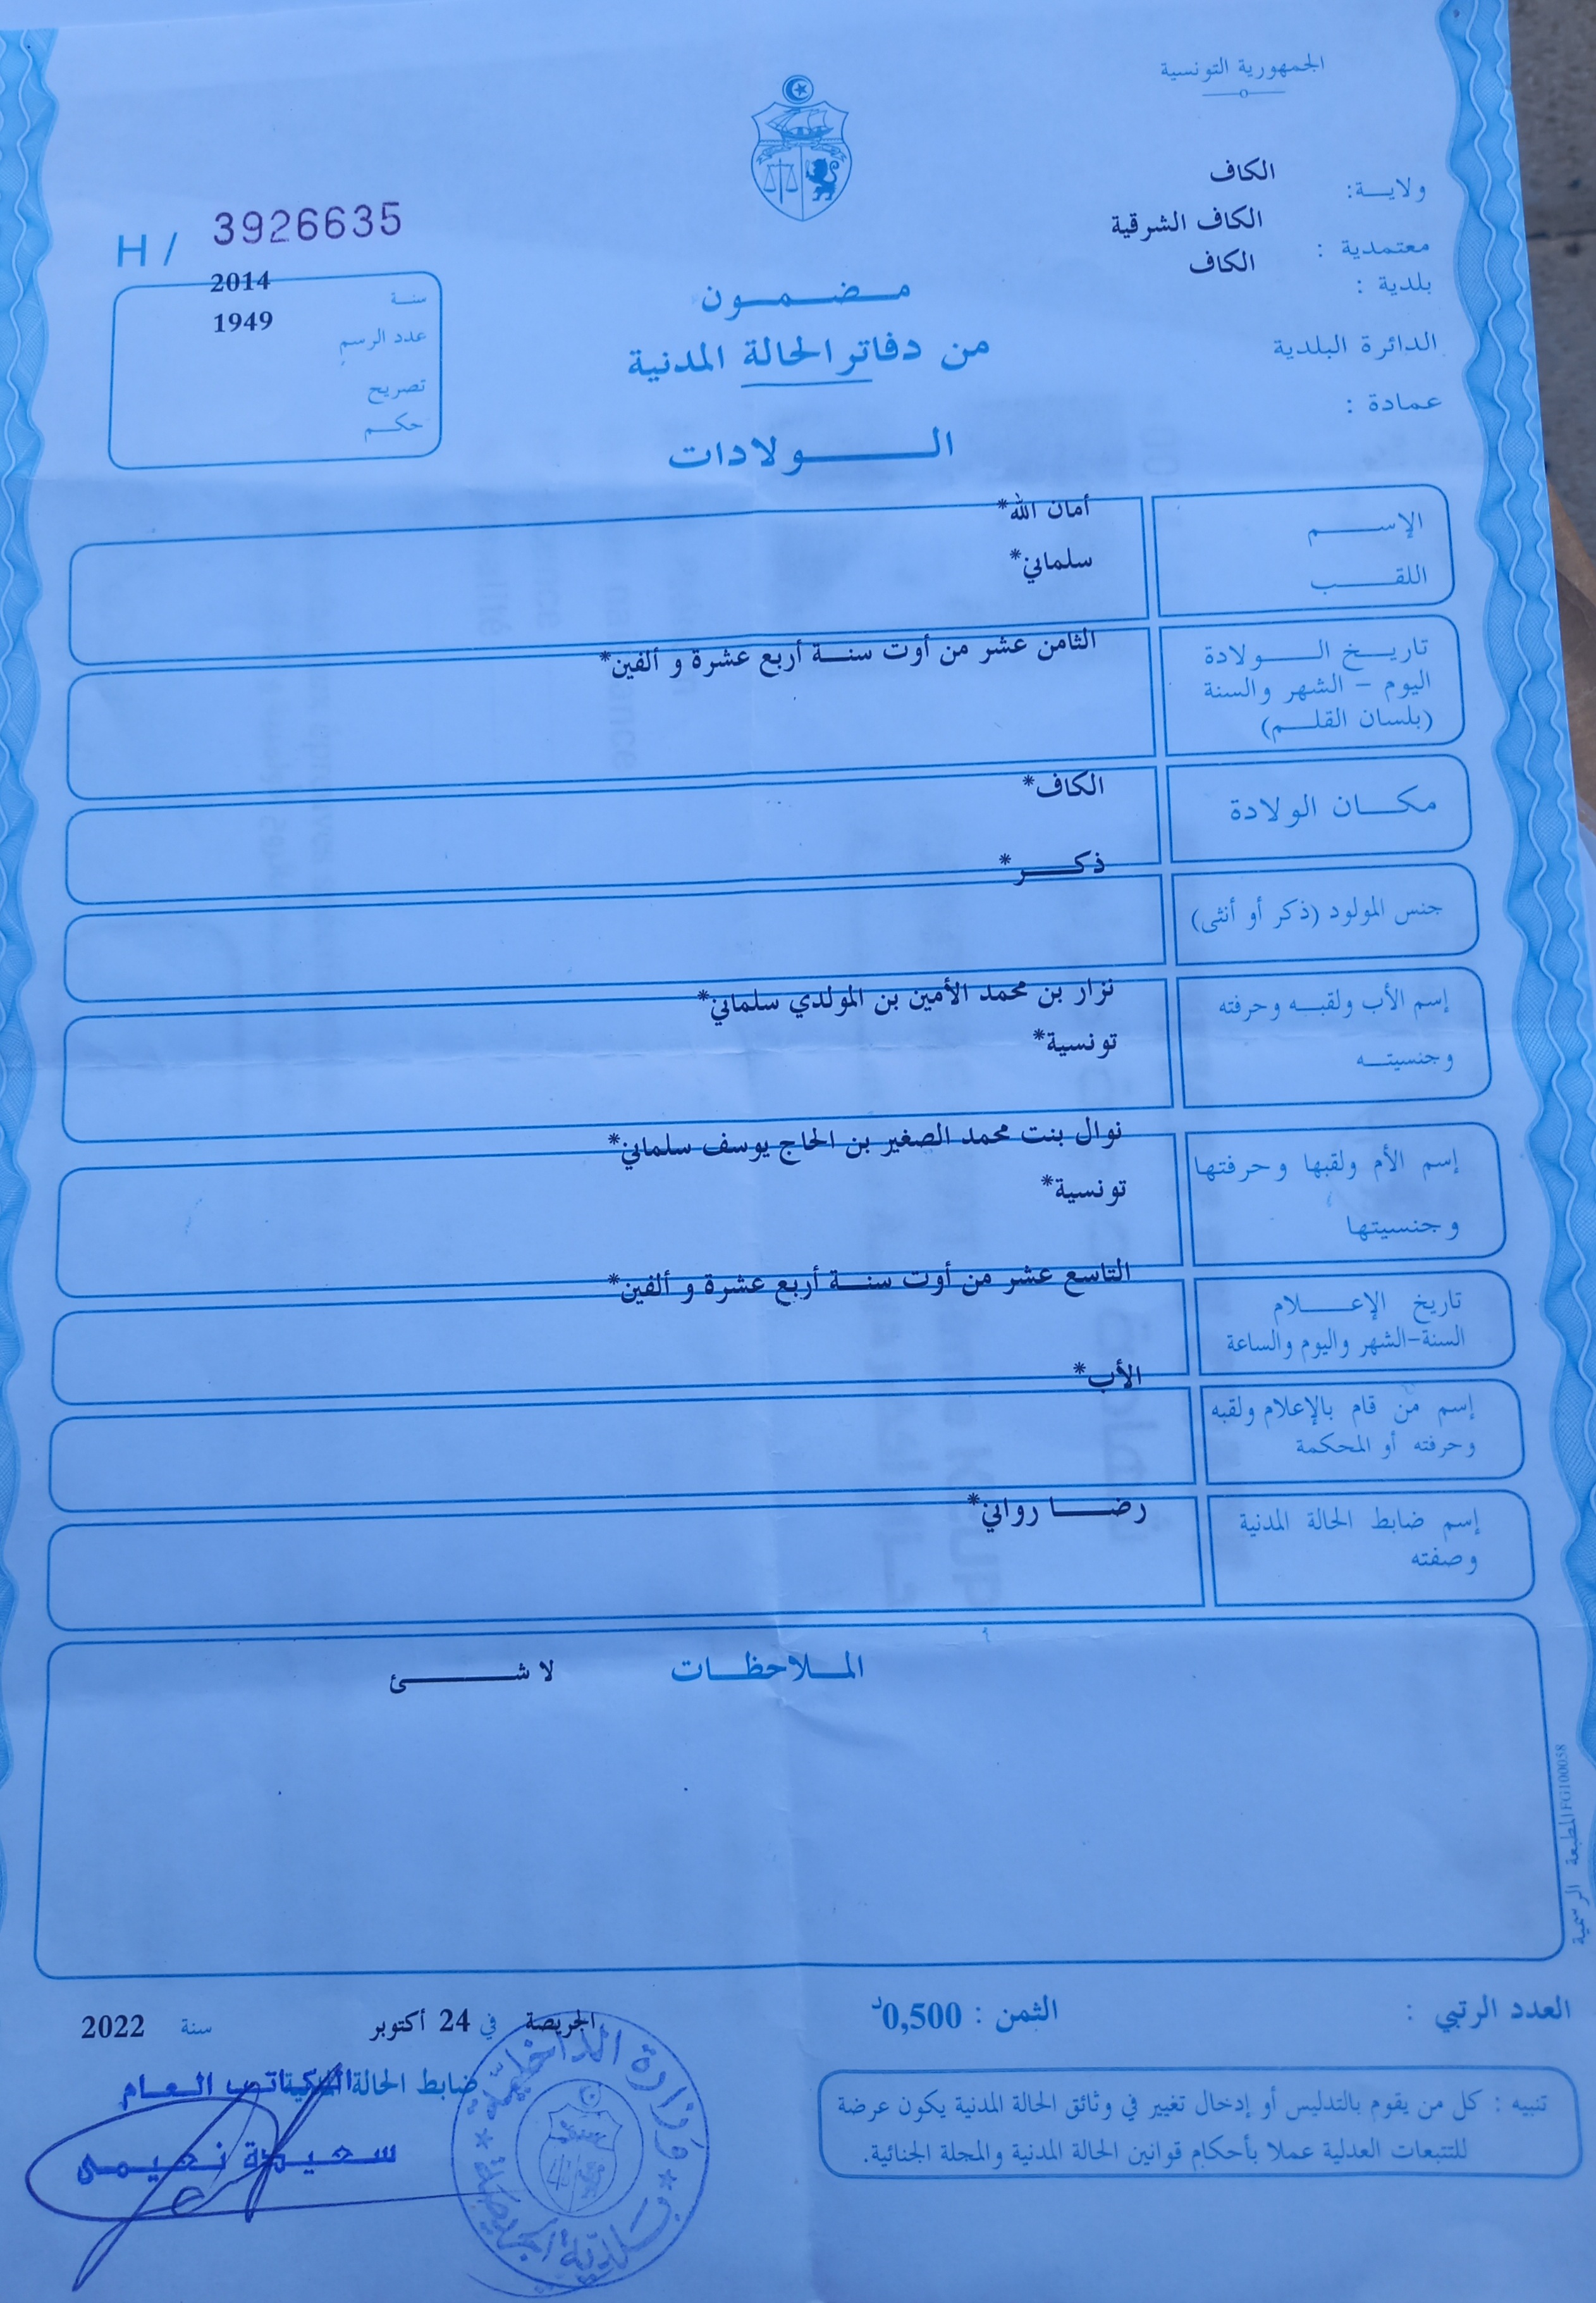 الجمهورية التونسية
ولايـــة: الكاف
معتمدية : الكاف الشرقية
بلدية : الكاف
الدائرة البلدية
عمادة :
H / 3926635
سنـة 2014
عدد الرسم 1949
تصريح
حكـــم
مـــضـــمـــون
من دفاتر الحالة المدنية
الـــــــولادات
الإســـــم أمان الله*
اللقـــــب سلماني*
تاريـــخ الـــــولادة الثامن عشر من أوت سنـــة أربع عشرة و ألفين*
اليوم - الشهر والسنة
(بلسان القلـــم)
مكـــان الولادة الكاف*
جنس المولود (ذكر أو أنثى) ذكـــــر*
إسم الأب ولقبـــه وحرفته نزار بن محمد الأمين بن المولدي سلماني*
وجنسيتـــه تونسية*
إسم الأم ولقبها وحرفتها نوال بنت محمد الصغير بن الحاج يوسف سلماني*
وجنسيتها تونسية*
تاريخ الإعـــــلام التاسع عشر من أوت سنـــة أربع عشرة و ألفين*
السنة-الشهر واليوم والساعة
إسم من قام بالإعلام ولقبه الأب*
وحرفته أو المحكمة
إسم ضابط الحالة المدنية رضـــــا رواني*
وصفته
المـــلاحظـــات لا شـــــــئ
المطبعة الرسمية FG100058
العدد الرتبي :
الثمن : 0,500د
الجريصة في 24 أكتوبر سنة 2022
ضابط الحالة المدنية
الكـاتـب الـعـام
سـعـيـدة نـعـيـمـي
وزارة الداخلية
بلدية الجريصة
تنبيه : كل من يقوم بالتدليس أو إدخال تغيير في وثائق الحالة المدنية يكون عرضة
للتتبعات العدلية عملا بأحكام قوانين الحالة المدنية والمجلة الجنائية.